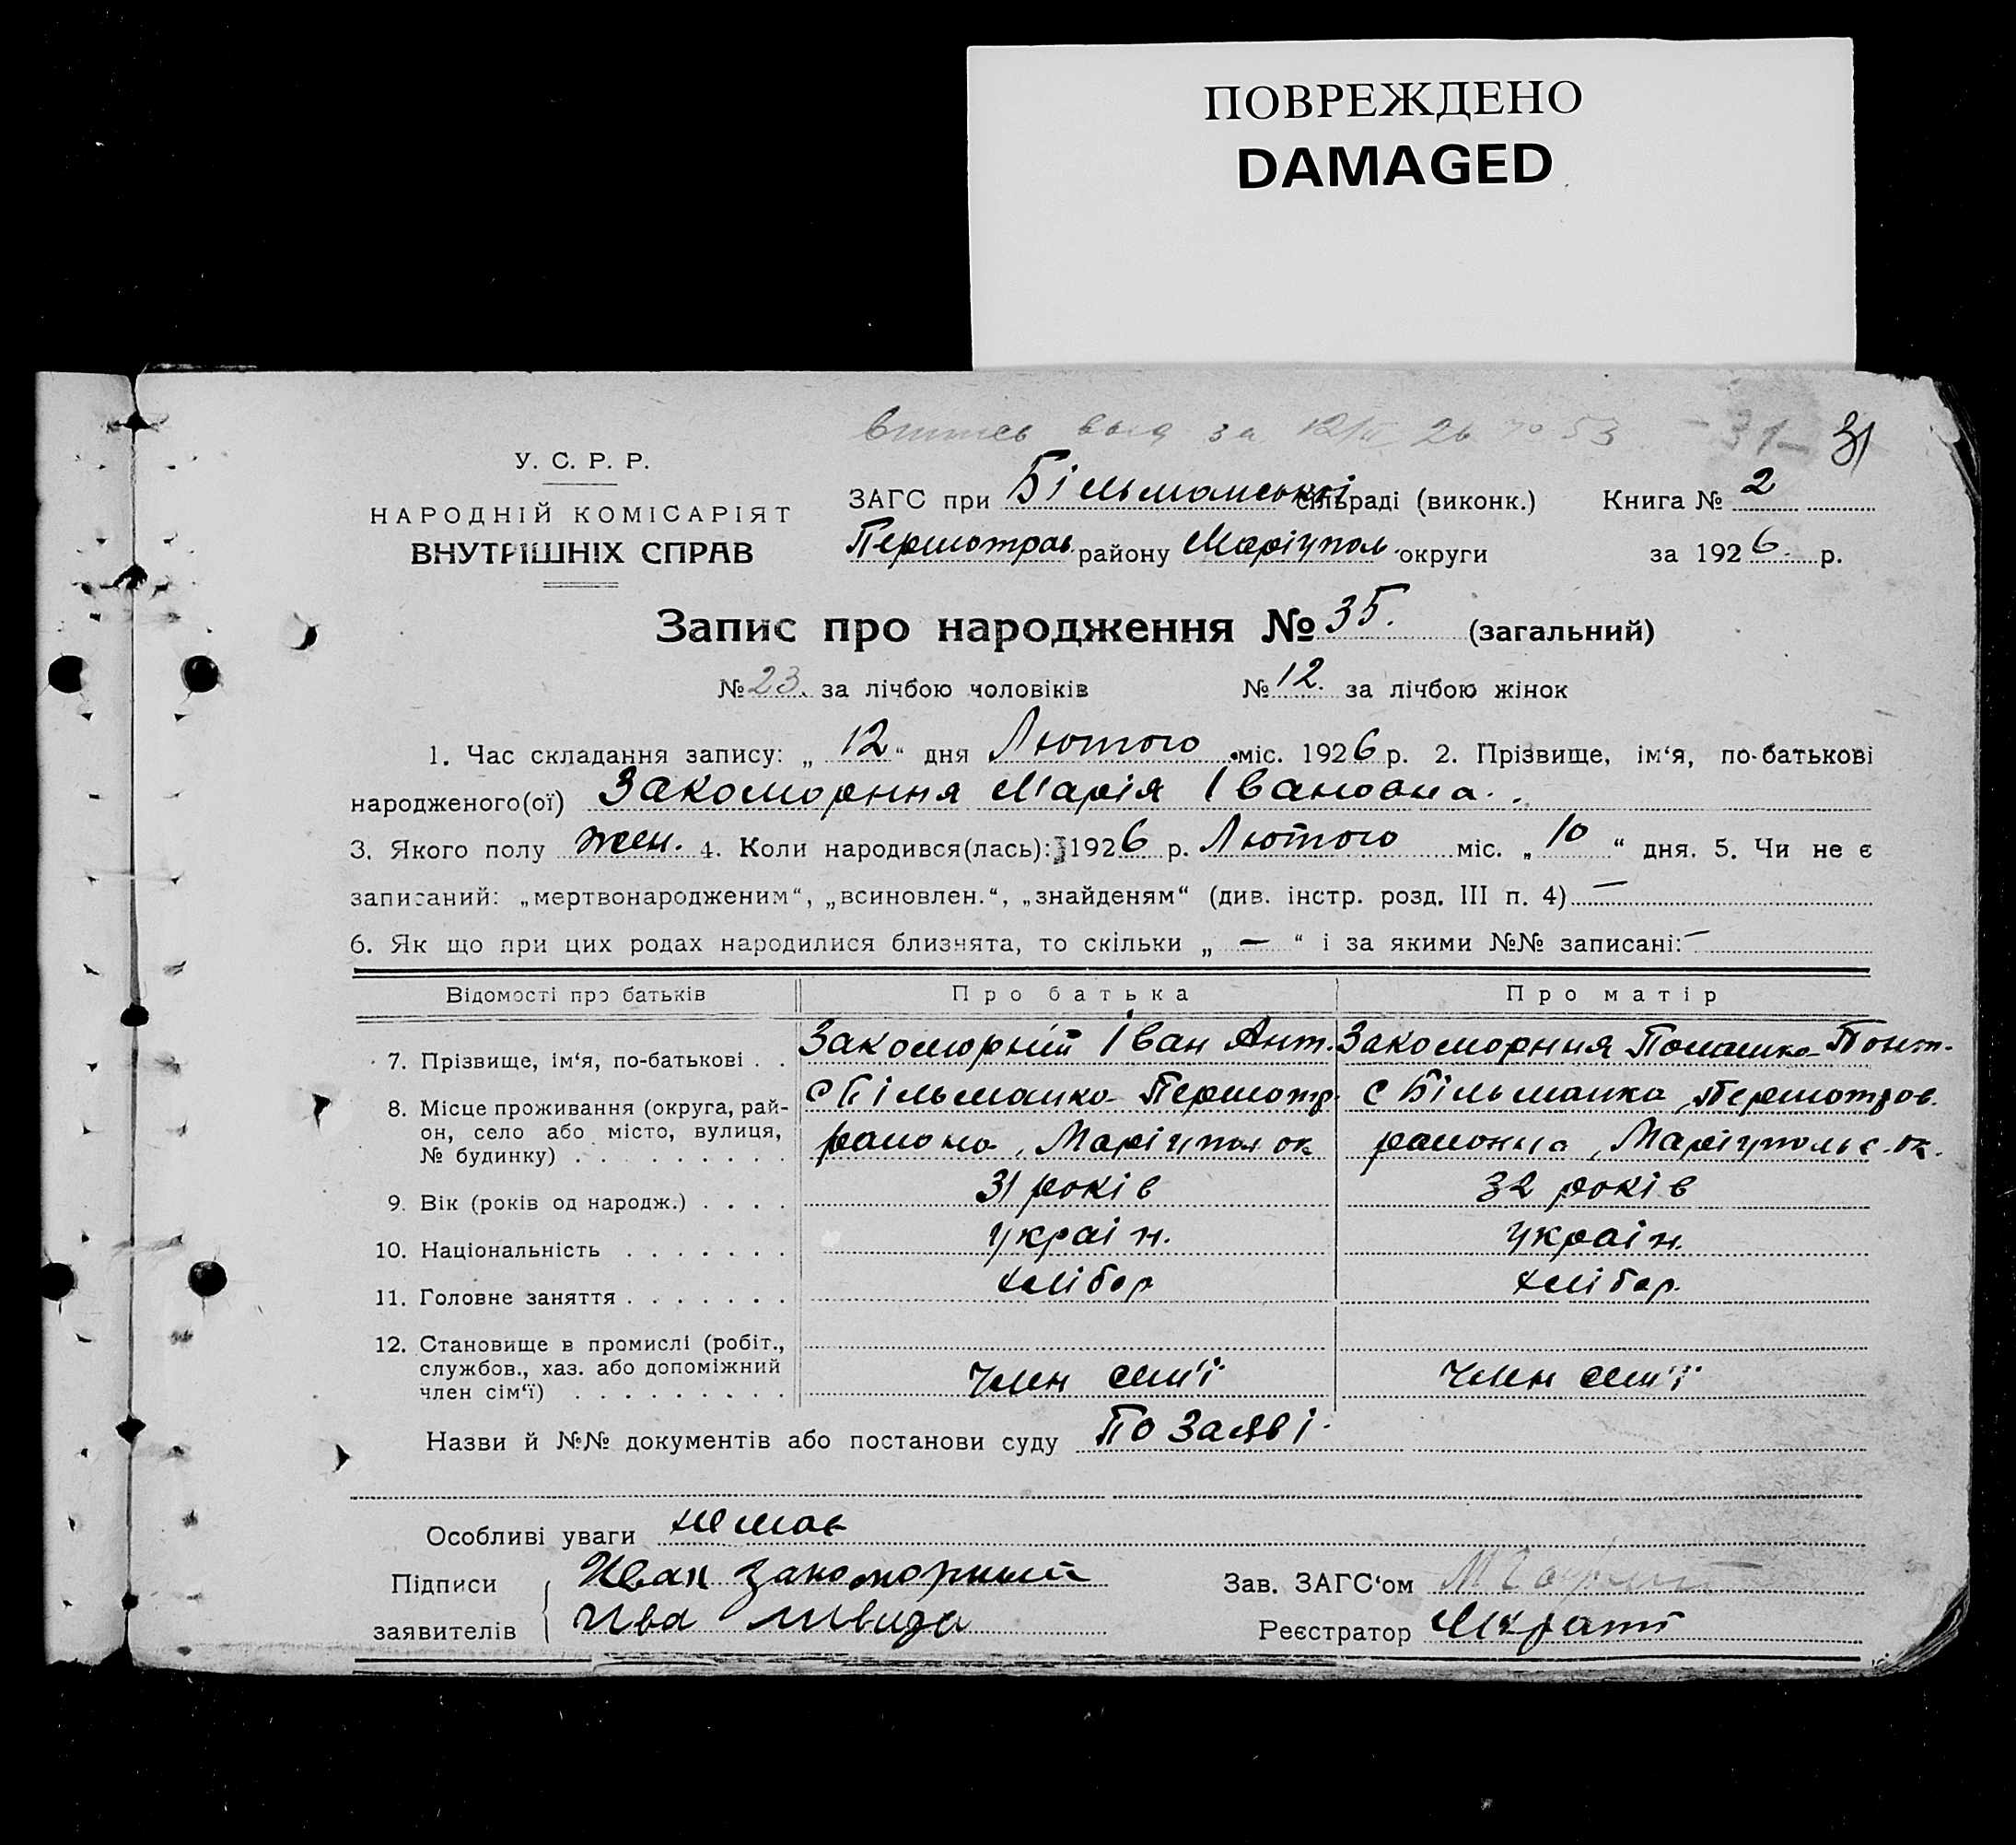 ПОВРЕЖДЕНО
DAMAGED
за 12/II 26 № 53 - 31 - 31
У. С. Р. Р.
НАРОДНІЙ КОМІСАРІЯТ
ВНУТРІШНІХ СПРАВ
ЗАГС при Більманській сільраді (виконк.) Книга № 2
Першотрав. району Маріупол. округи за 1926 р.
Запис про народження № 35. (загальний)
№ 23. за лічбою чоловіків № 12. за лічбою жінок
1. Час складання запису: „ 12 “ дня Лютого міс. 1926 р. 2. Прізвище, ім‘я, по-батькові
народженого(ої) Закоморння Марія Івановна.
3. Якого полу жен. 4. Коли народився(лась): 1926 р. Лютого міс. „ 10 “ дня. 5. Чи не є
записаний: „мертвонародженим“, „всиновлен.“, „знайденям“ (див. інстр. розд. III п. 4) —
6. Як що при цих родах народилися близнята, то скільки „ — “ і за якими №№ записані: —
Відомості про батьків Про батька Про матір
7. Прізвище, ім‘я, по-батькові . . Закоморній Іван Ант. Закоморння
8. Місце проживання (округа, рай- с Більманка Першотр. с Більманка, Першотрав.
он, село або місто, вулиця,
№ будинку) . . . . . . . . . району, Маріупол ок района, Маріупольс. ок.
9. Вік (років од народж.) . . . . 31 років 32 років
10. Національність . . . . . . . україн. україн.
11. Головне заняття . . . . . . . хлібор хлібор.
12. Становище в промислі (робіт.,
службов., хаз. або допоміжний
член сім‘ї) . . . . . . . . . член сем'ї член сем'ї
Назви й №№ документів або постанови суду По Заяві.
Особливі уваги немає
Підписи Иван Закоморний Зав. ЗАГС‘ом
заявителів Ива Швида Реєстратор